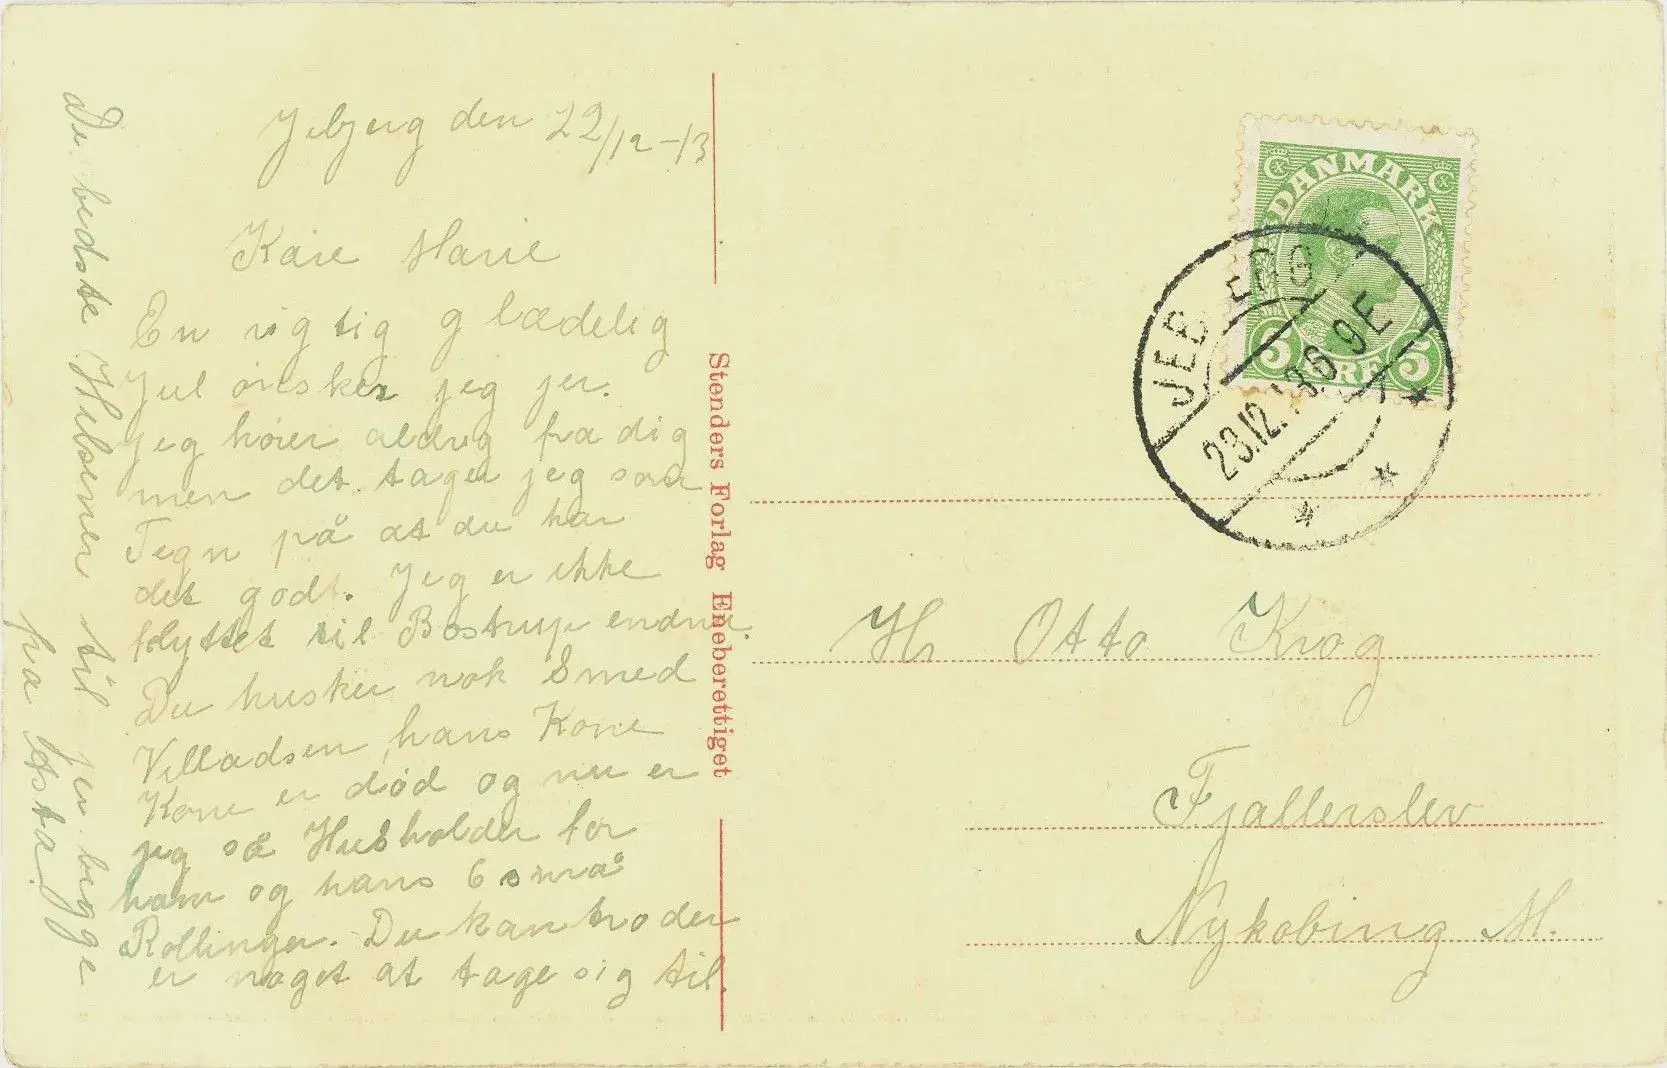 Jebjerg den 22/12-13
Kære Marie
En rigtig glædelig
Jul ønsker jeg jer.
jeg hører aldrig fra dig
men det tager jeg som
Tegn på at du har
det godt. Jeg er ikke
flyttet til Bostrup endnu.
Du husker nok Smed
Villadsen, hans Kone
Kone er død og nu er
jeg så Husholder for
ham og hans 6 små
Rollinger. Du kan tro der
er noget at tage sig til.
De bedste Hilsener til jer begge
fra Asta.
Stenders Forlag Eneberettiget
DANMARK
5 ØRE 5
JEBJERG
23.12.13.6-9E
Hr Otto Krog
Fjallerslev
Nykobing M.